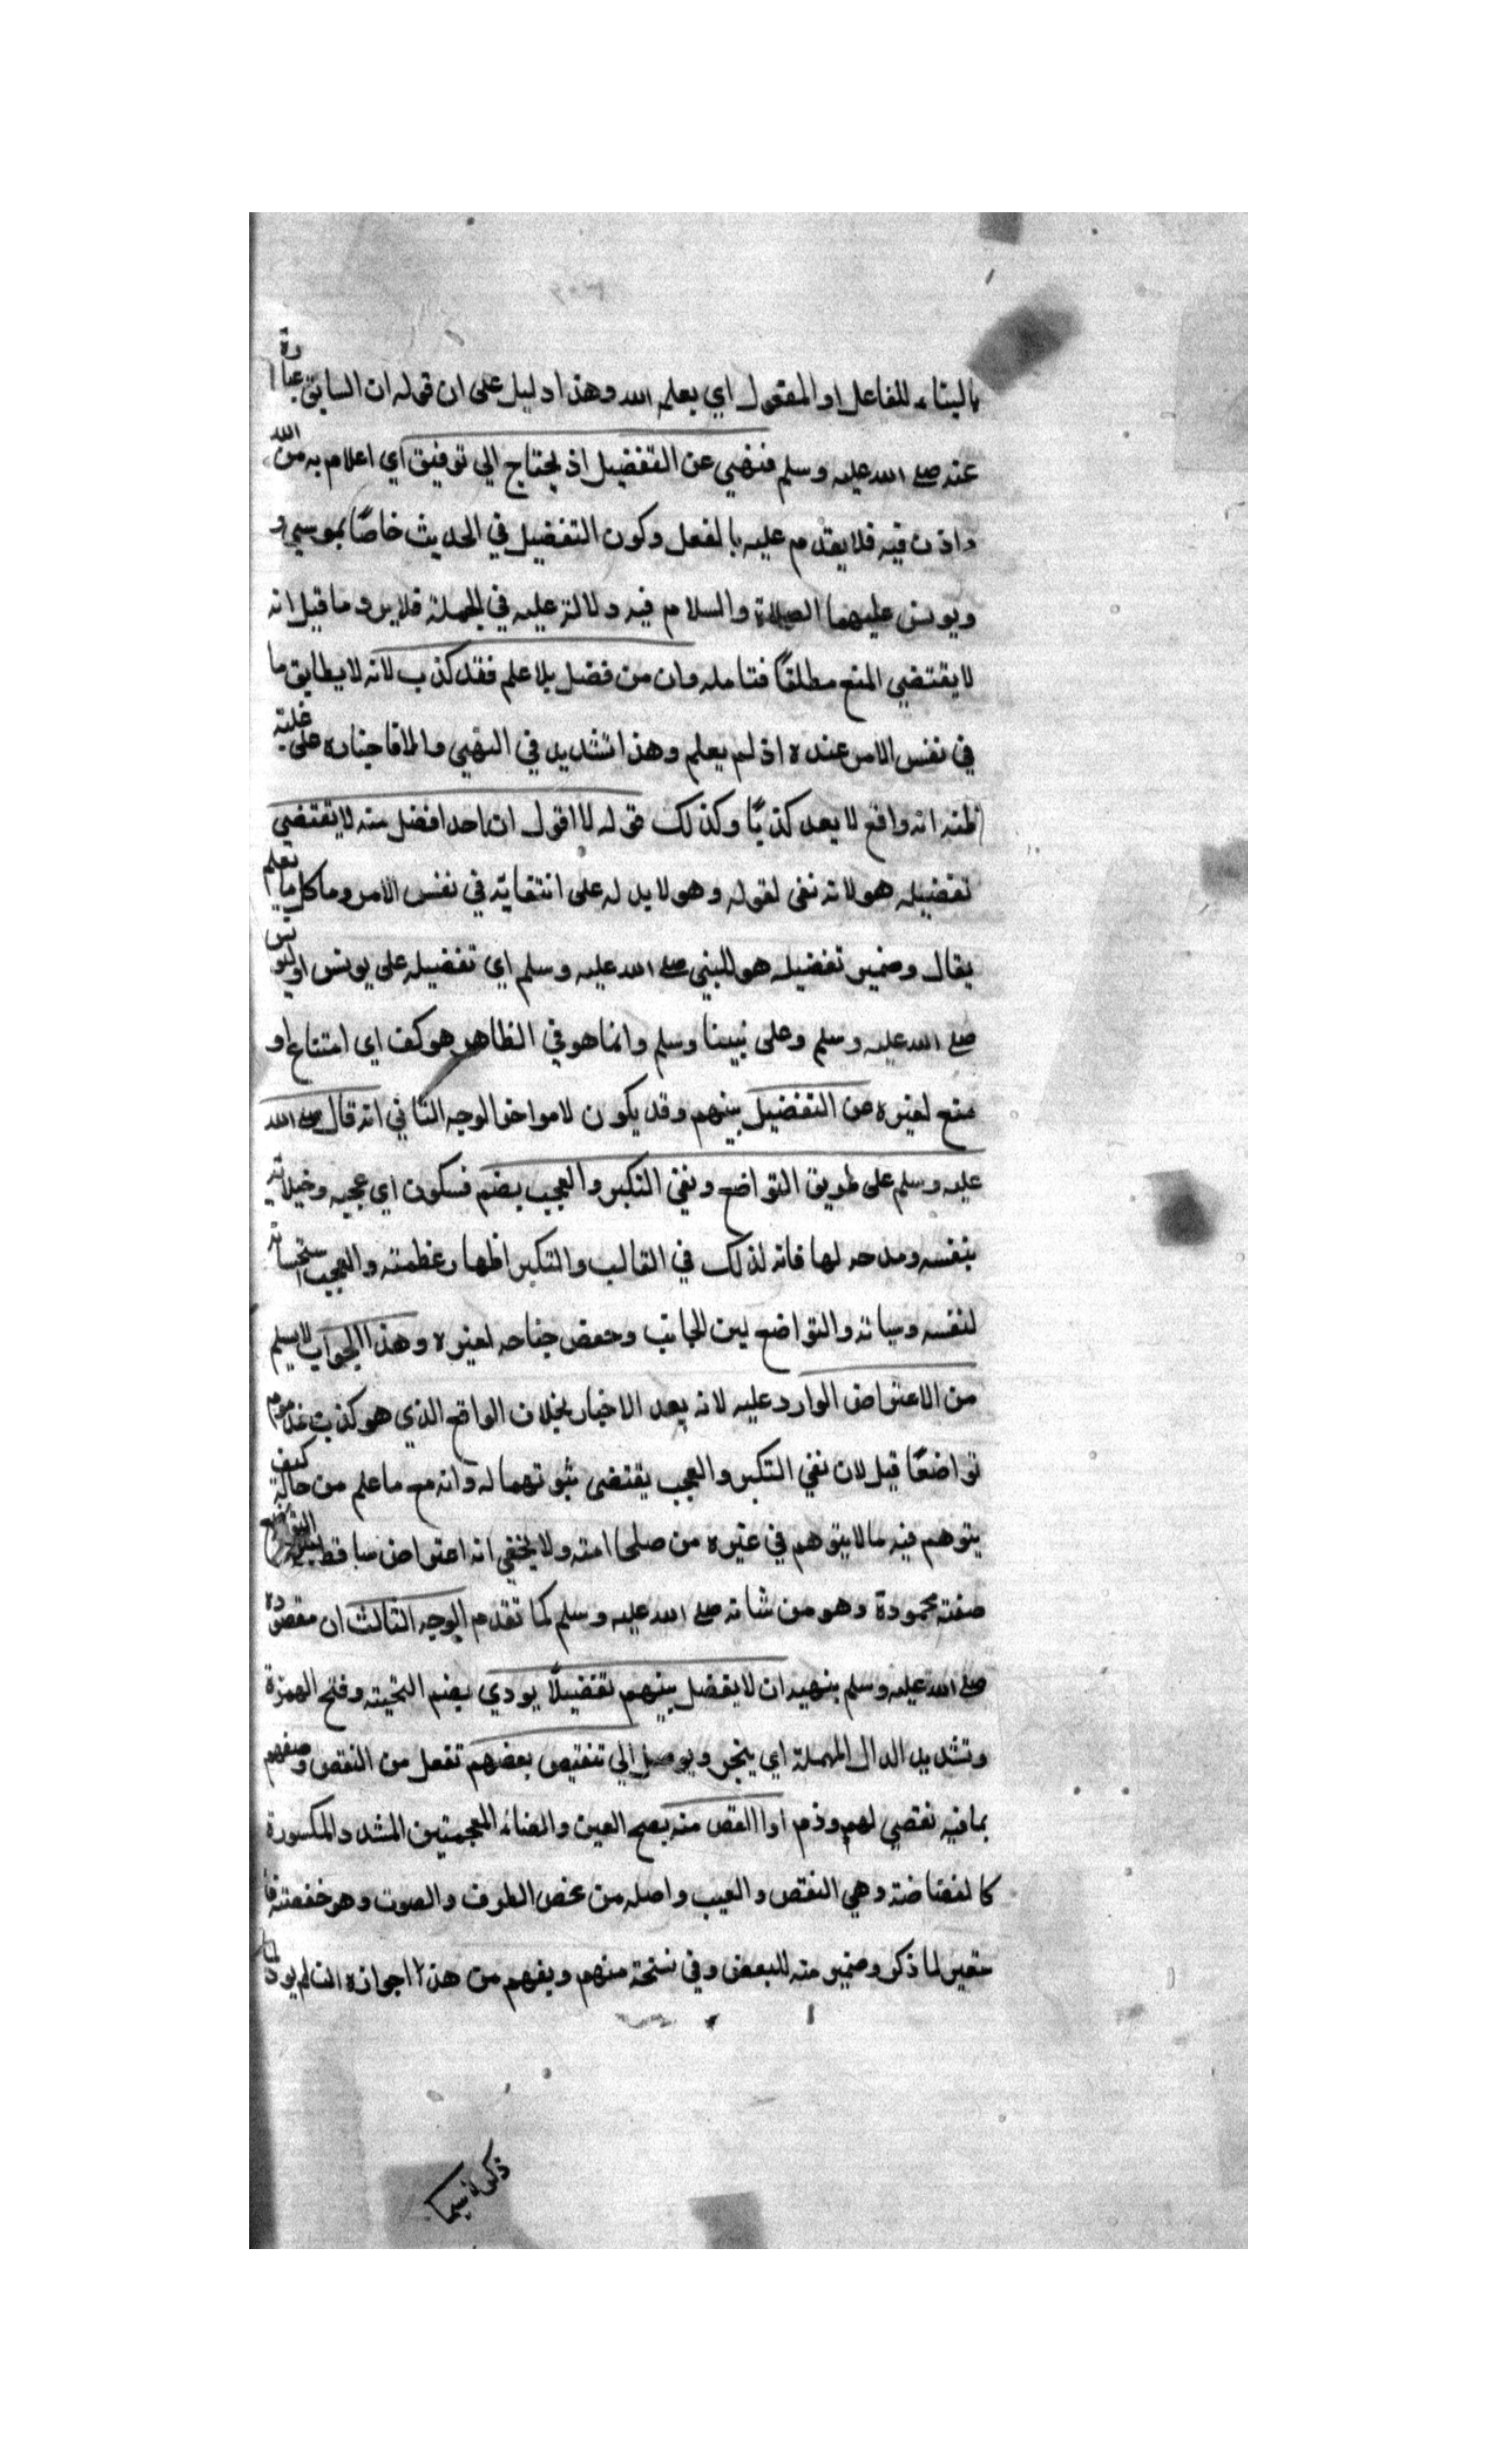 بالبناء للفاعل او المفعول اي يعلمه الله وهذا دليل على ان قوله ان السابق عبارة
عنه صلى الله عليه وسلم فنهي عن التفضيل اذ يحتاج الي توفيق اي اعلام به من الله
واذن فيه فلا يقدم عليه بالفعل وكون التفضيل في الحديث خاصًا بموسي و
ويونس عليهما الصلاة والسلام فيه دلالة عليه في الجملة فلا يرد ما قيل انه
لا يقتضي المنع مطلقًا فتامله وان من فضل بلا علم فقد كذب لانه لا يطابق ما
في نفس الامر عنده اذ لم يعلم وهذا تشديد في النهي والا فاخباره على غلبة
ظنه انه واقع لا يعد كذبًا وكذلك قوله لا اقول ان احدا افضل منه لا يقتضي
تفضيله هو لانه نفى لقوله وهو لا يدله على انتفايه في نفس الامر وما كل ما يعلم
يقال وضمير تفضيله هو للنبي صلى الله عليه وسلم اي تفضيله على يونس او ليونس
صلى الله عليه وسلم وعلى نبينا وسلم وانما هو في الظاهر هو كف اي امتناع او
منع لغيره من التفضيل بينهم وقد يكون لامر اخر الوجه الثاني انه قال صلى الله
عليه وسلم على طريق التواضع ونفي التكبر والعجب بضم فسكون اي عجبه وخيلائه
بنفسه ومدحه لها فانه لذلك في الغالب والتكبر اظهار عظمته والعجب استحسانه
لنفسه وشانه والتواضع لين الجانب وخفض جناحه لغيره وهذا الجواب لا يسلم
من الاعتراض الوارد عليه لانه بعد الاخبار بخلاف الواقع الذي هو كذب مذموم
تواضعًا قيل لان نفي التكبر والعجب يقتضى ثبوتهما له وانه مع ما علم من حاله كيف
يتوهم فيه ما لا يتوهم في غيره من صلحا امته ولا يخفي انه اعتراض ساقط التواضع
صفة محمودة وهو من شانه صلى الله عليه وسلم كما تقدم الوجه الثالث ان مقصوده
صلى الله عليه وسلم بنهيه ان لا يفضل بينهم تفضيلًا يودي بضم التحيته وفتح الهمزة
وتشديد الدال المهملة اي ينجر ويوصل الي تنقيص بعضهم تفعل من النقص وصفهم
بما فيه نقص لهم وذم او الغض منه بفتح الغين والضاد المعجمتين المشدد والمكسورة
كالغضاضة وهي النقص والعيب واصله من غض الطرف والصوت وهو خفضته فا
ستعير لما ذكر وضمير منه للبعض وفي نسخة منهم ويفهم من هذا جوازه ان لم يود لما
ذكر لا سيما